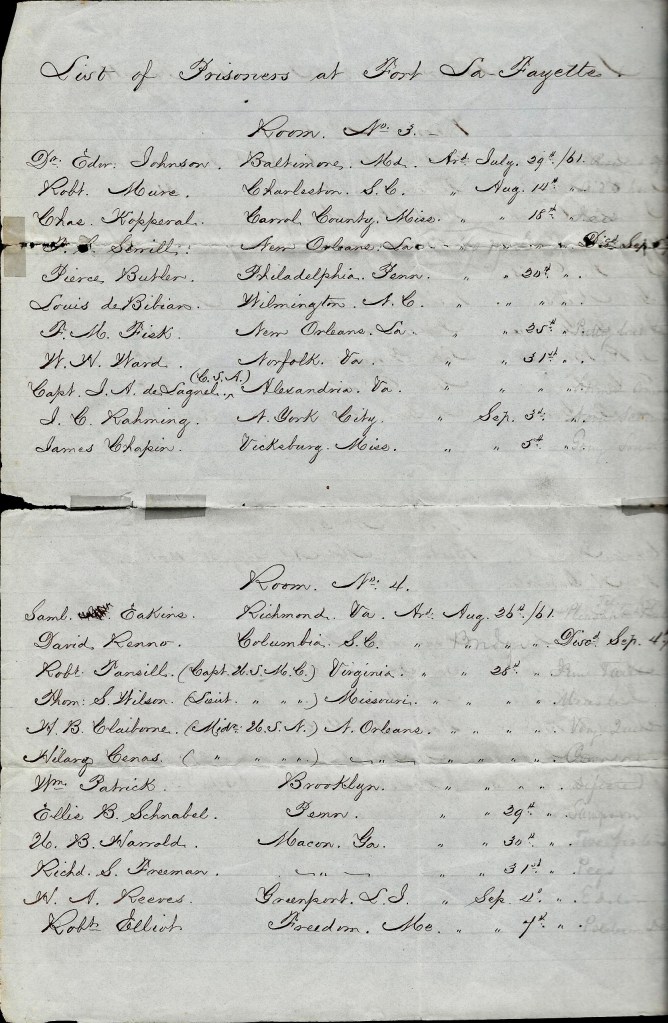 List of Prisoners at Fort La-Fayette.
Room. No. 3.
Dr. Edw. Johnson. Baltimore, Md. Ard. July. 29th /61.
Robt. Mure. Charleston. S.C. " Aug. 14th ".
Chas. Kopperal. Carrol County. Miss. " " 18th ".
Serrill. New Orleans. La. " " " " Disd. Sep.
Pierce Butler. Philadelphia. Penn. " " 20th ".
Louis de Bibian. Wilmington. N.C. " " " ".
F. M. Fisk. New Orleans. La. " " 25th ".
W. W. Ward. Norfolk. Va. " " 31st ".
Capt. J. A. de Lagnel. (C.S.A.) Alexandria. Va. " " " ".
J. C. Rahming. N. York City. " Sep. 3d. ".
James Chapin. Vicksburg. Miss. " " 5th ".
Room. No. 4.
Saml. Eakins. Richmond. Va. Ard. Aug. 26th. /61.
David Renno. Columbia. S.C. " " " " Discd. Sep. 4th
Robt. Tansill. (Capt. U.S.M.C.) Virginia. " " 28th ".
Thom: S. Wilson. (Lieut. " " ") Missouri. " " " ".
W. B. Claiborne. (Midn. U.S.N.) N. Orleans. " " " ".
Hilary Cenas. ( " " " ") — " — " " " ".
Wm. Patrick. Brooklyn. " " " ".
Ellis B. Schnabel. Penn. " " 29th ".
U. B. Harrold. Macon. Ga. " " 30th ".
Richd. S. Freeman. — " — " " 31st ".
W. A. Reeves. Greenport. L.I. " Sep. 4th ".
Robt. Elliot. Freedom. Me. " " 7th ".